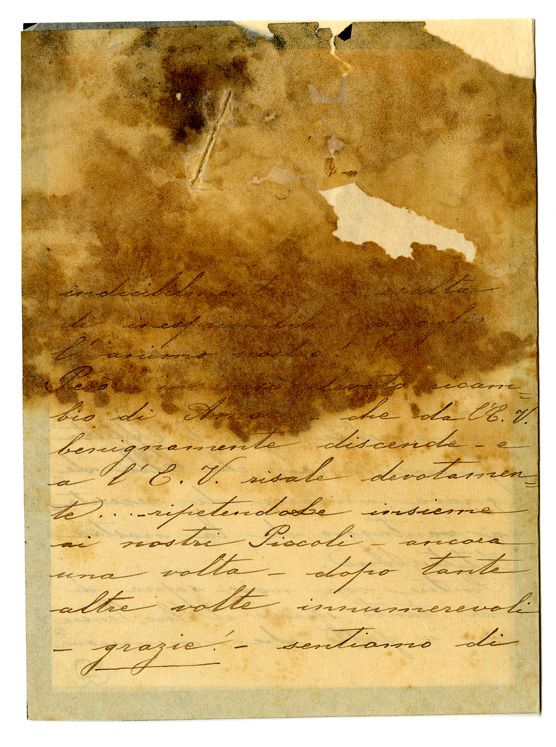 indicibilmente
di
l'animo nostro
devoto ricam=
bio di Amore - che da l'E. V.
benignamente discende - e
a l'E. V. risale devotamen=
te.... ripetendole insieme
ai nostri Piccoli - ancora
una volta - dopo tante
altre volte innumerevoli
- grazie! - sentiamo di